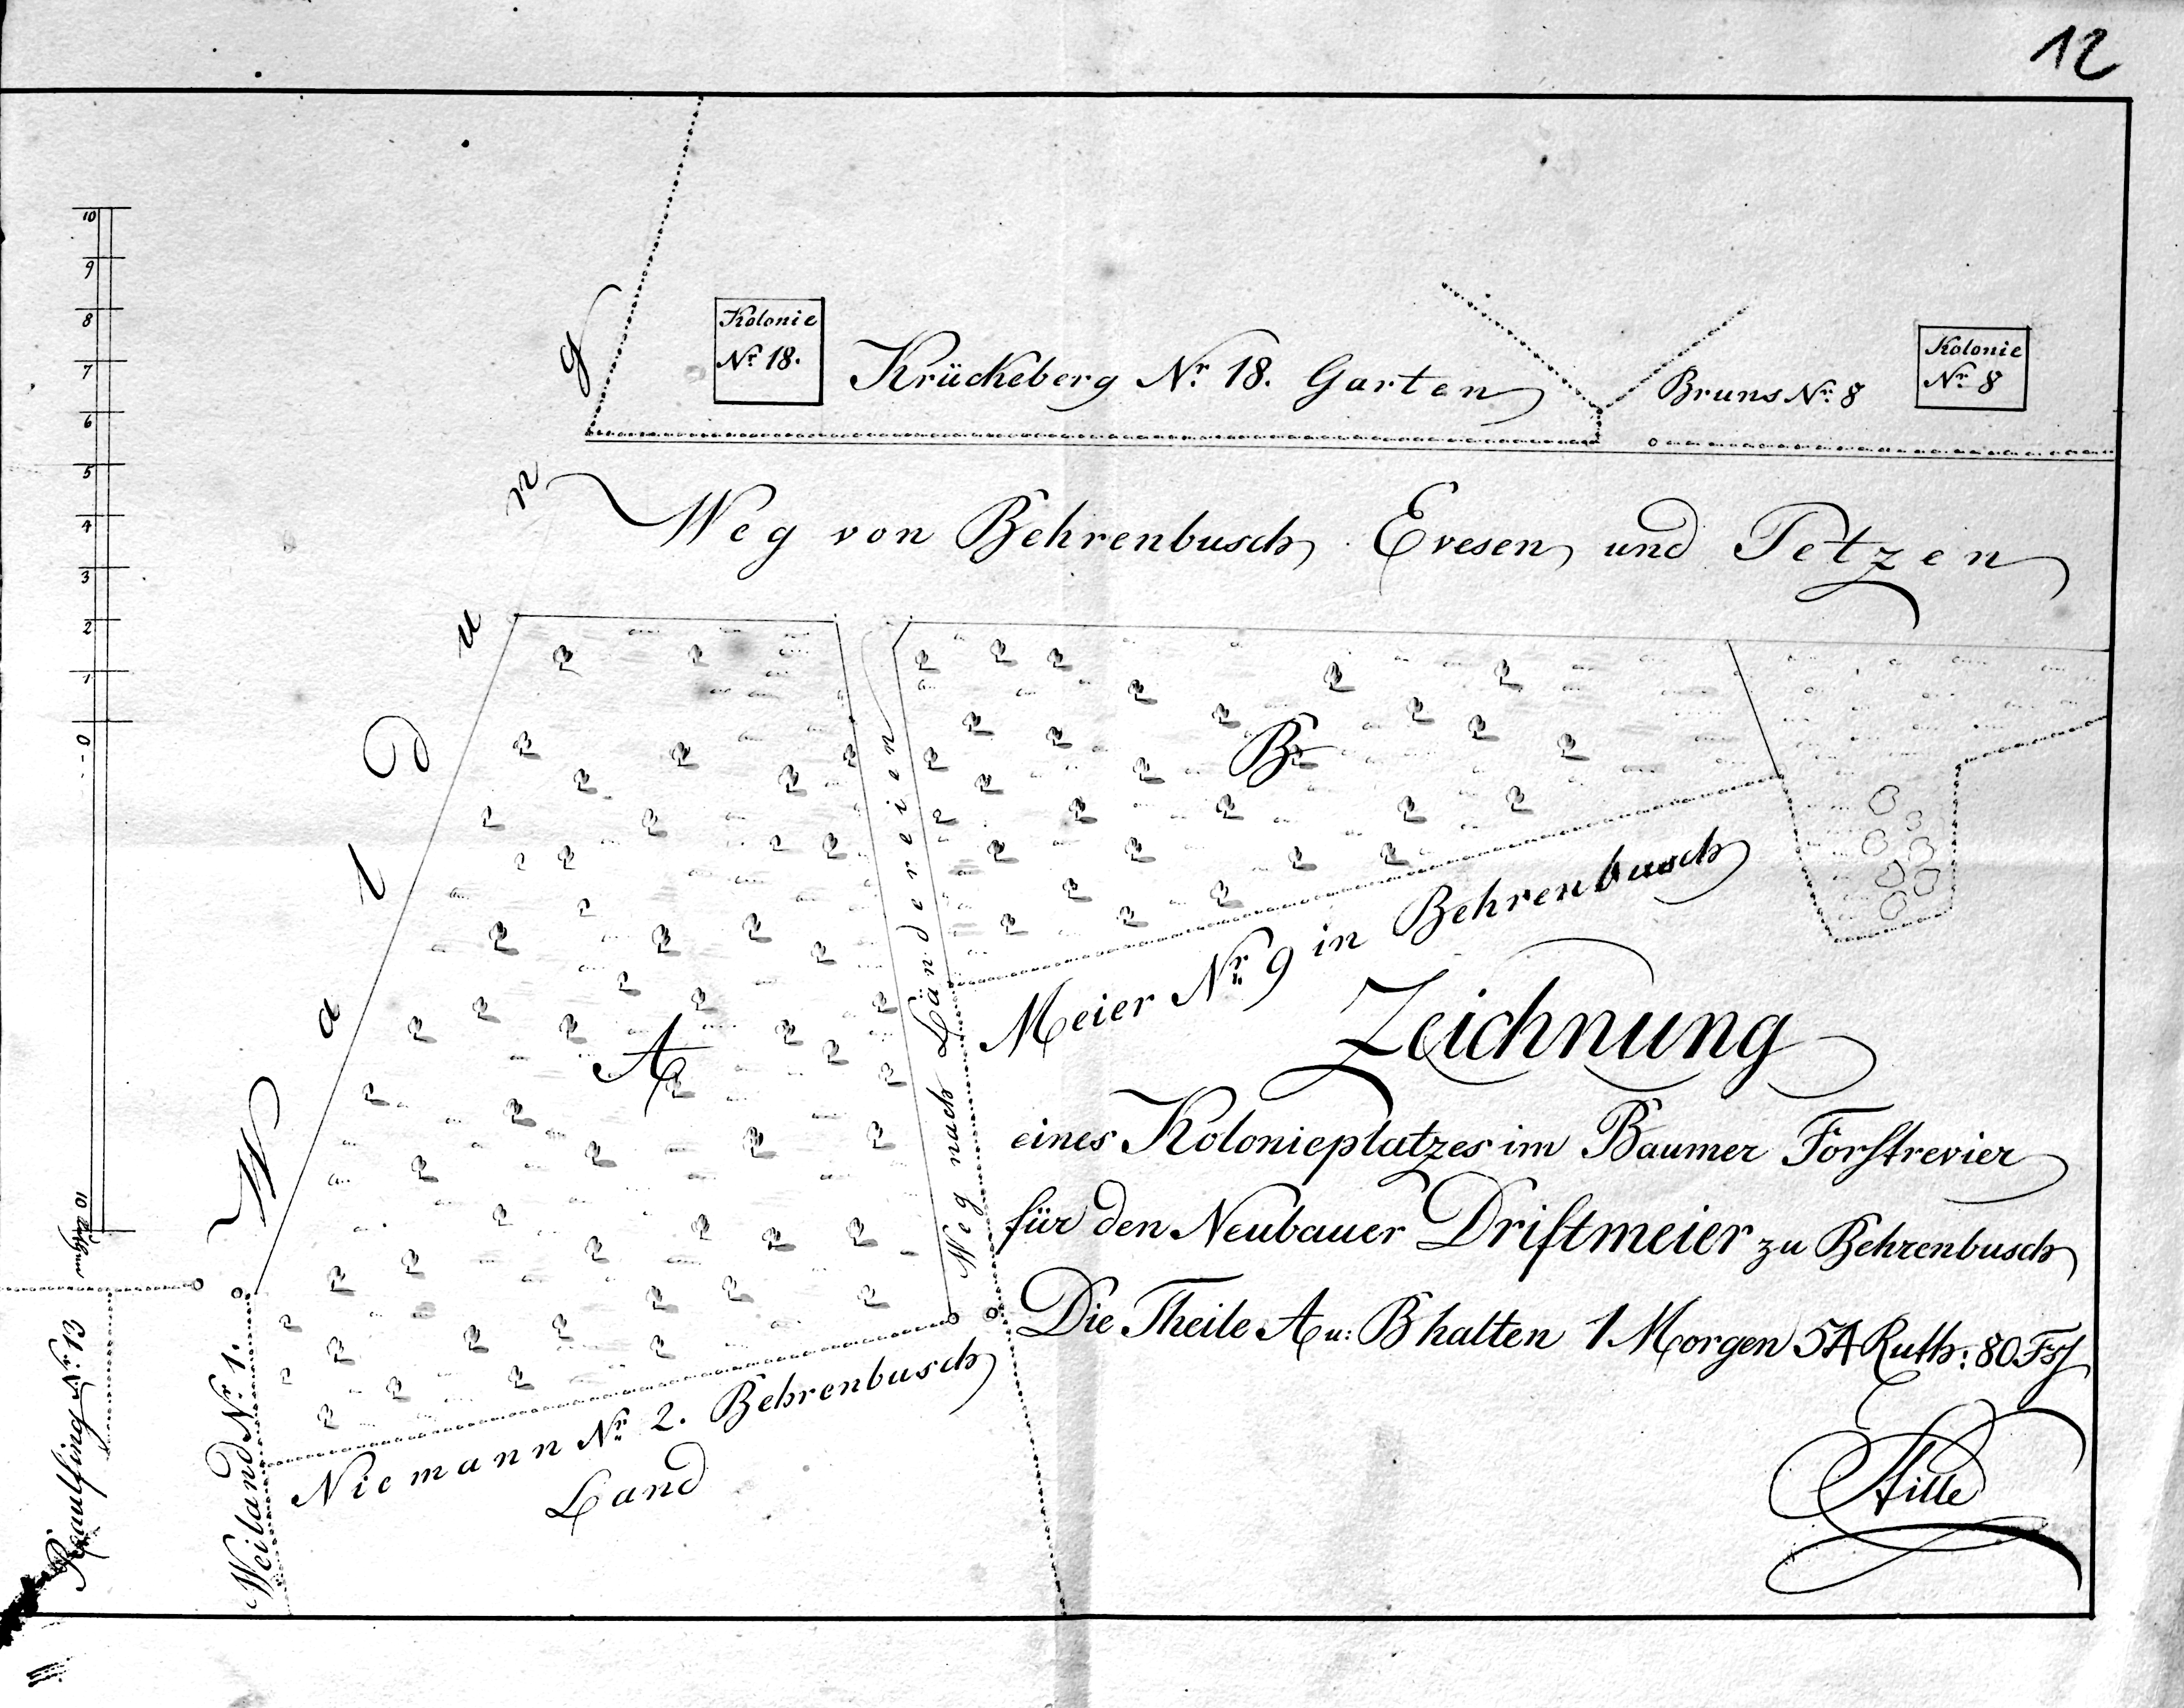 12
10
9
8
7
6
5
4
3
2
1
0
10
Kolonie
Nr. 18.
Krückeberg Nr. 18. Garten
Bruns Nr. 8
Kolonie
Nr. 8
Weg von Behrenbusch Evesen und Petzen
Waldung
A
B
Weg nach Ländereien
Meier Nr. 9 in Behrenbusch
Zeichnung
eines Kolonieplatzes im Baumer Forstrevier
für den Neubauer Driftmeier zu Behrenbusch
Die Theile A u: B halten 1 Morgen 54 Ruth: 80 Fß
Hille
Niemann Nr. 2. Behrenbusch
Land
Weiland Nr. 1.
Nr. 13